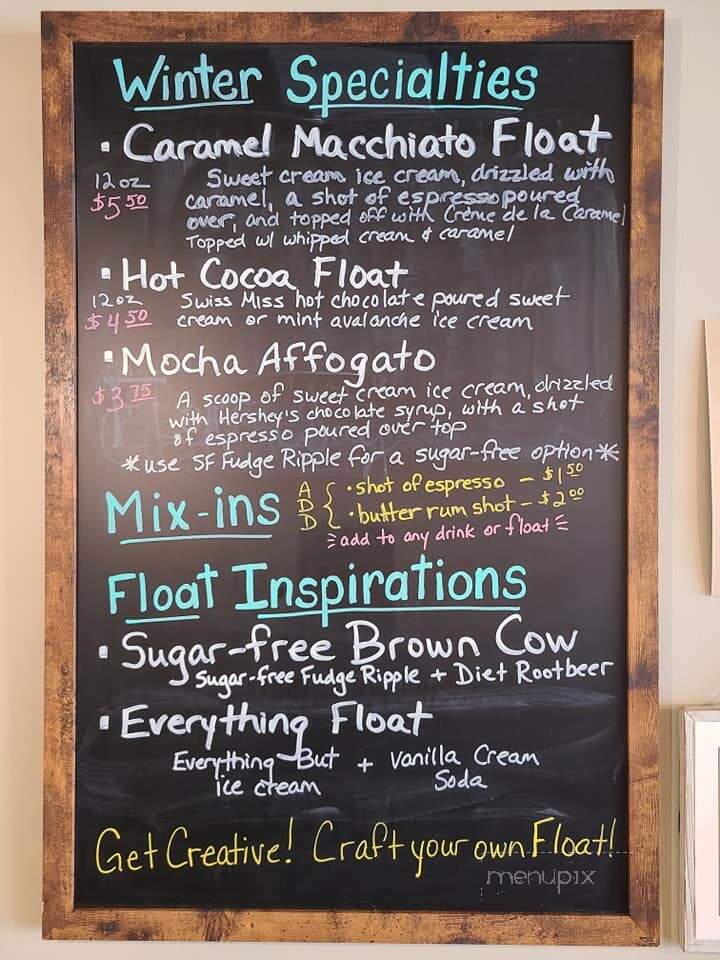 Winter Specialties
• Caramel Macchiato Float
12oz Sweet cream ice cream, drizzled with
$5.50 caramel, a shot of espresso poured
over, and topped off with Crème de la Caramel
Topped w/ whipped cream & caramel
• Hot Cocoa Float
12oz Swiss Miss hot chocolate poured sweet
$4.50 cream or mint avalanche ice cream
• Mocha Affogato
$3.75 A scoop of sweet cream ice cream, drizzled
with Hershey's chocolate syrup, with a shot
of espresso poured over top
*use SF Fudge Ripple for a sugar-free option*
Mix-ins ADD { • shot of espresso - $1.50
• butter rum shot - $2.00
add to any drink or float
Float Inspirations
• Sugar-free Brown Cow
Sugar-free Fudge Ripple + Diet Rootbeer
• Everything Float
Everything But + Vanilla Cream
ice cream Soda
Get Creative! Craft your own Float!
menupix